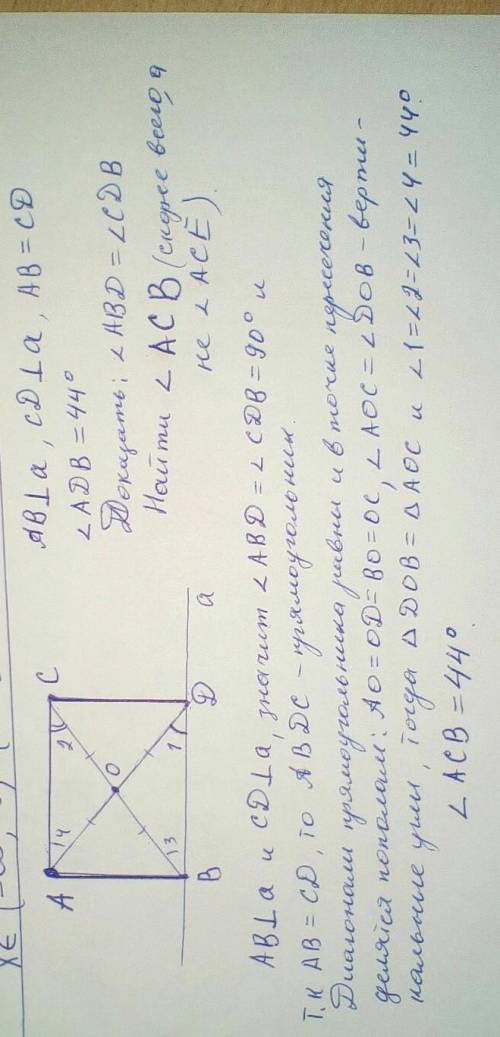 AB⊥a, CD⊥a, AB=CD
∠ADB=44°
Доказать: ∠ABD=∠CDB
Найти ∠ACB (скорее всего, а
не ∠ACE).
A
C
4
2
O
3
1
B
D
a
AB⊥a и CD⊥a, значит ∠ABD=∠CDB=90° и
Т.к AB=CD, то ABDC – прямоугольник.
Диагонали прямоугольника равны и в точке пересечения
делятся пополам: AO=OD=BO=OC, ∠AOC=∠DOB – верти-
кальные углы, тогда △DOB=△AOC и ∠1=∠2=∠3=∠4=44°.
∠ACB=44°.